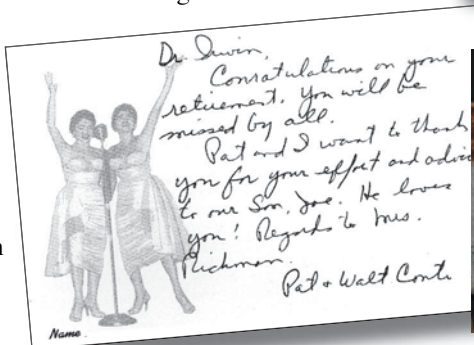 Dr. Irwin,
Conratulations on your
retirement. You will be
missed by all.
Pat and I want to thank
you for your effort and advice
to our Son, Joe. He loves
you! Regards to Mrs.
Richman.
Pat & Walt Conte
Name